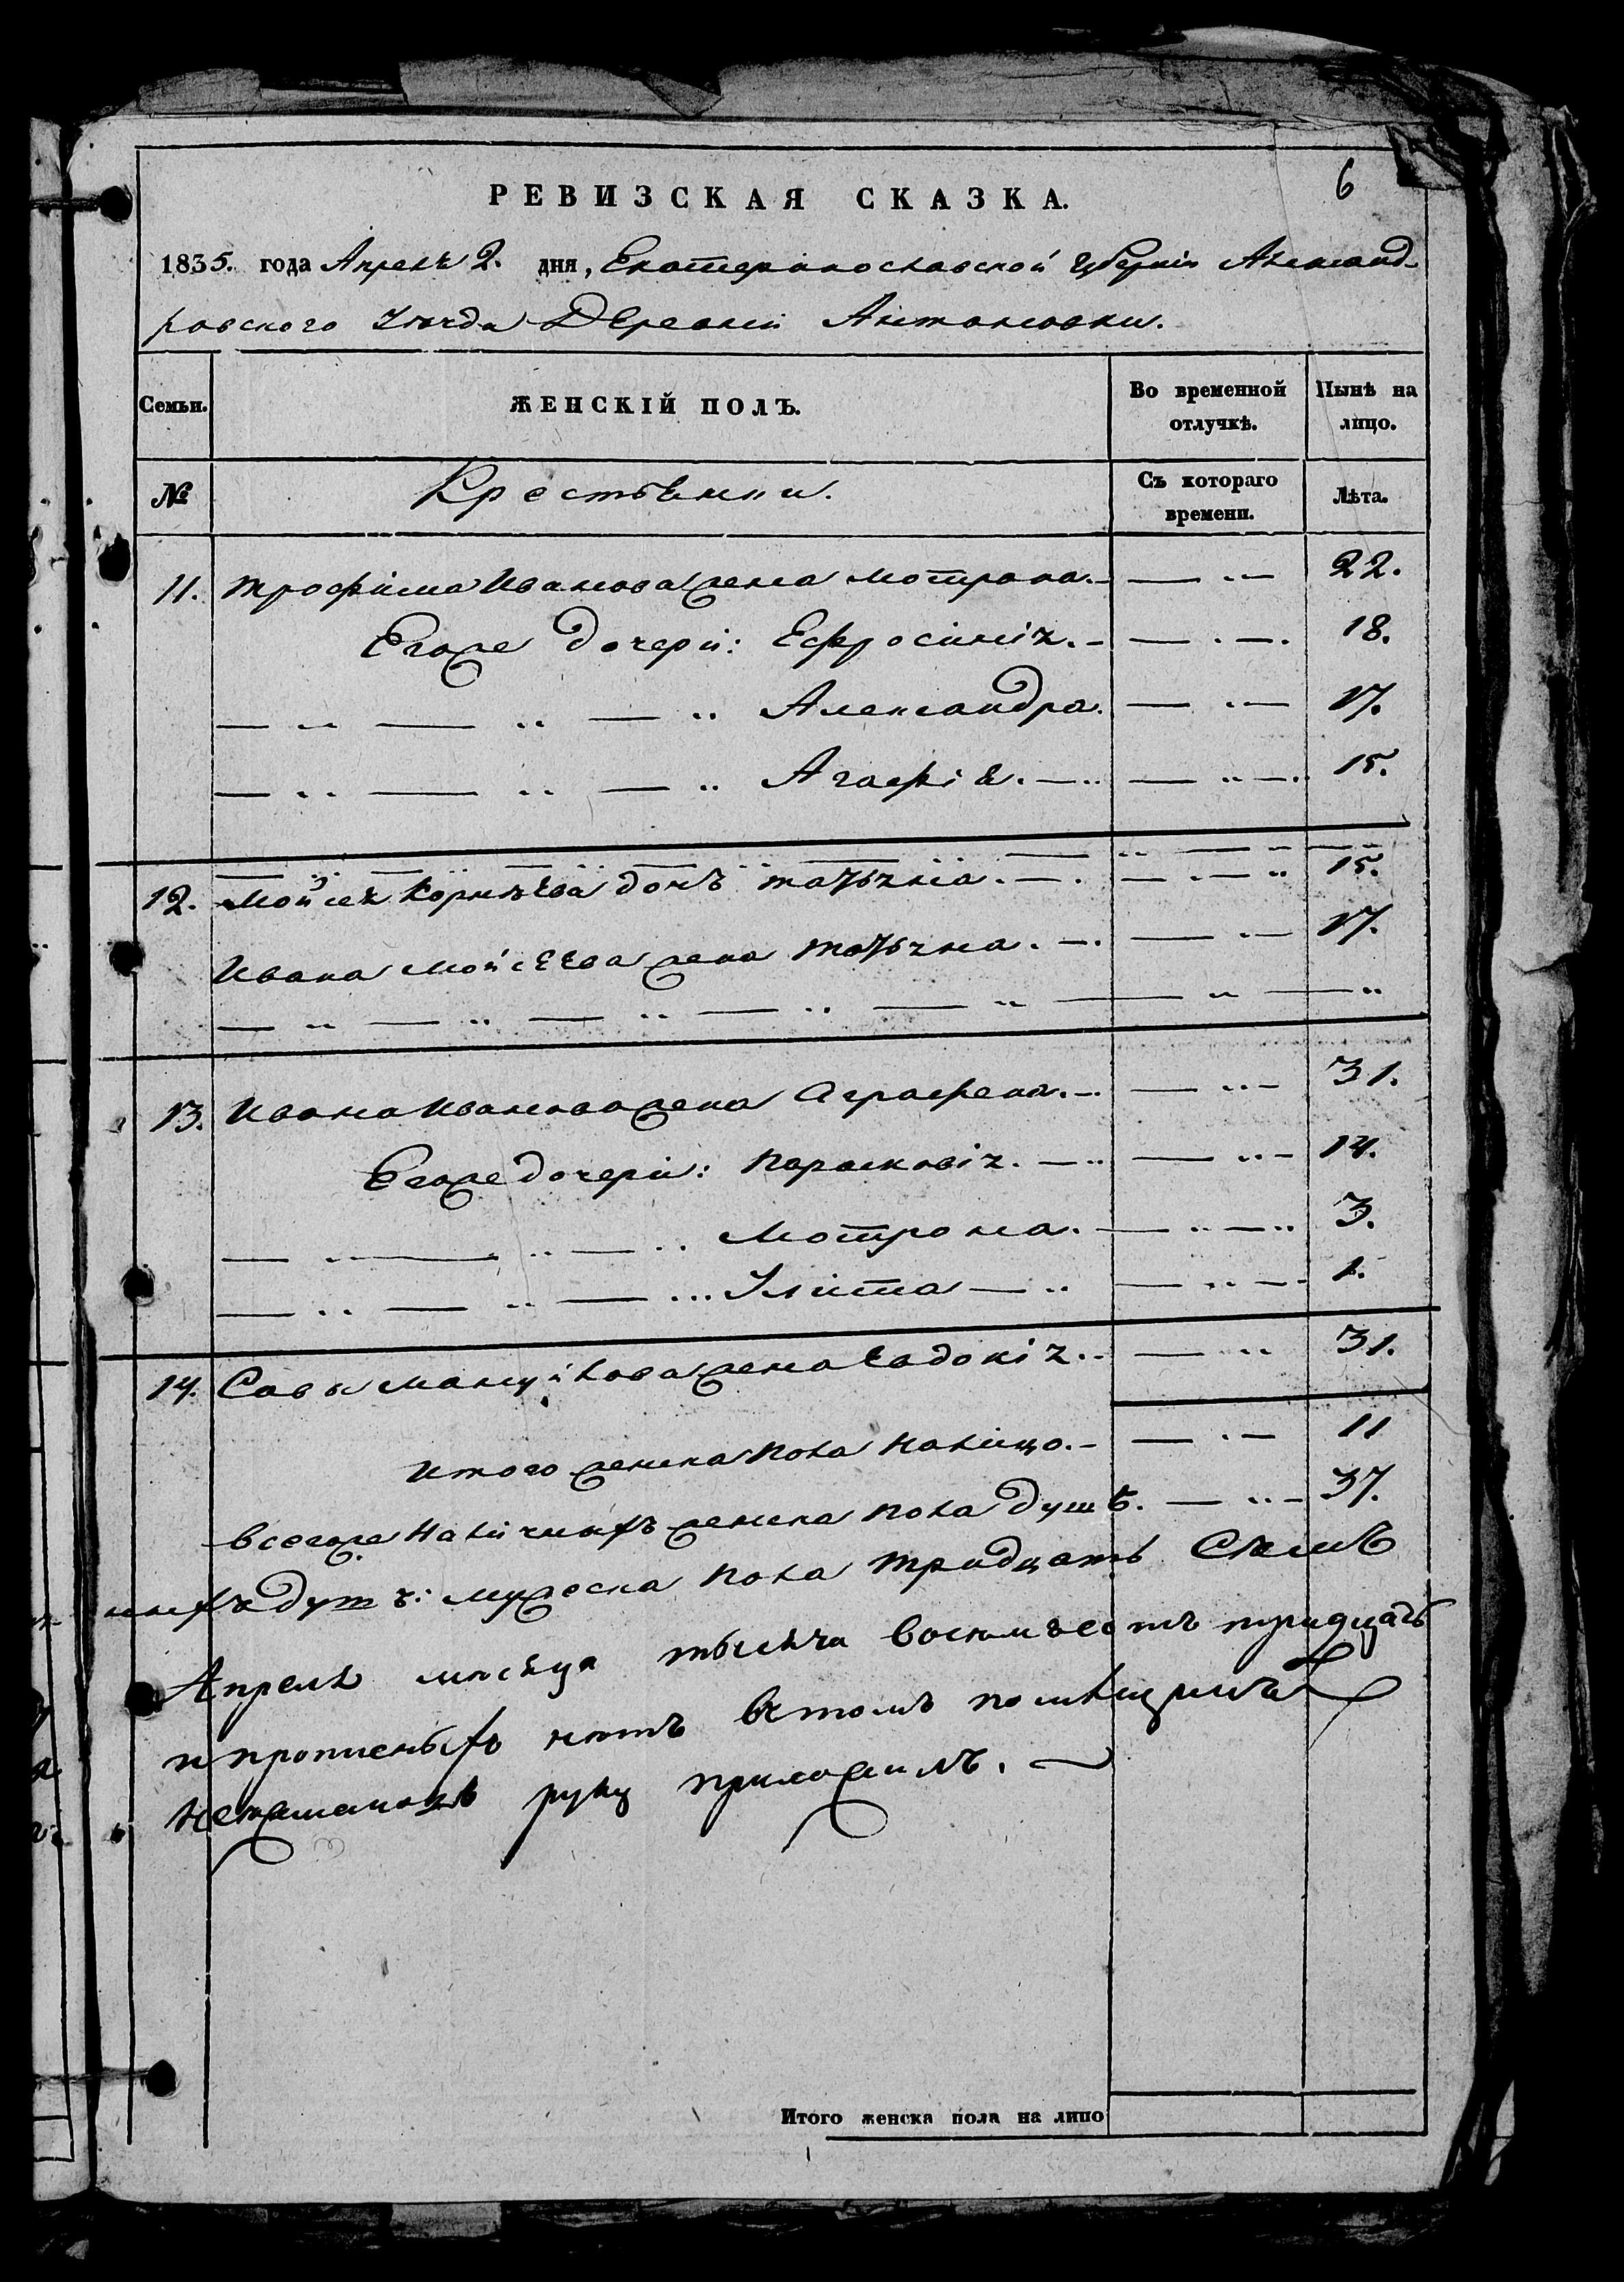 6
РЕВИЗСКАЯ СКАЗКА.
1835. года Апреля 2. дня, Екатеринославской губернии Александ-
ровского уезда Деревни Антоновки.
Семьи. ЖЕНСКІЙ ПОЛЪ. Во временной отлучкѣ. Нынѣ на лицо.
№ Крестьянки. Съ котораго времени. Лѣта.
11. Трофима Иванова жена Мотрона. 22.
Егоже дочери: Ефросинія. 18.
Александра. 17.
Агафія. 15.
12. Мойсея Корнѣева дочь Татьяна. 15.
Ивана Мойсеева жена Татьяна. 17.
13. Ивана Иванова жена Аграфена. 31.
Егоже дочери: Парасковія. 14.
Мотрона. 3.
Улита 1.
14. Савы жена Евдокія. 31.
Итого женска пола налицо. 11
Всегоже наличныхъ женска пола душъ. 37.
ныхъ душъ: мужеска пола тридцать Семь
Апреля месяца тысяча восемъсотъ тридцать
и прописныхъ нетъ въ томъ помещикъ
руку приложилъ.
Итого женска пола на лицо